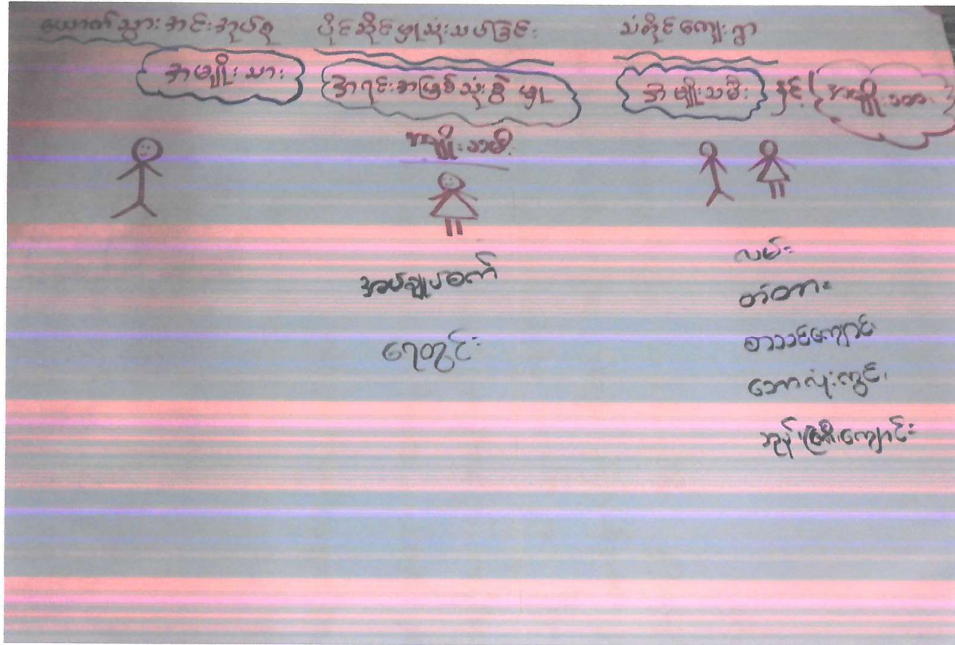 ယောက်သွားအင်းအုပ်စု ပိုင်ဆိုင်မှုသုံးသပ်ခြင်း သံတိုင်ကျေးရွာ
အမျိုးသား အရင်းအမြစ်သုံးစွဲမှု အမျိုးသမီး နှင့် အမျိုးသား
အမျိုးသမီး
အပ်ချုပ်စက်
ရေတွင်း
လမ်း
တံတား
စာသင်ကျောင်း
ဘောလုံးကွင်း
ဘုန်းကြီးကျောင်း